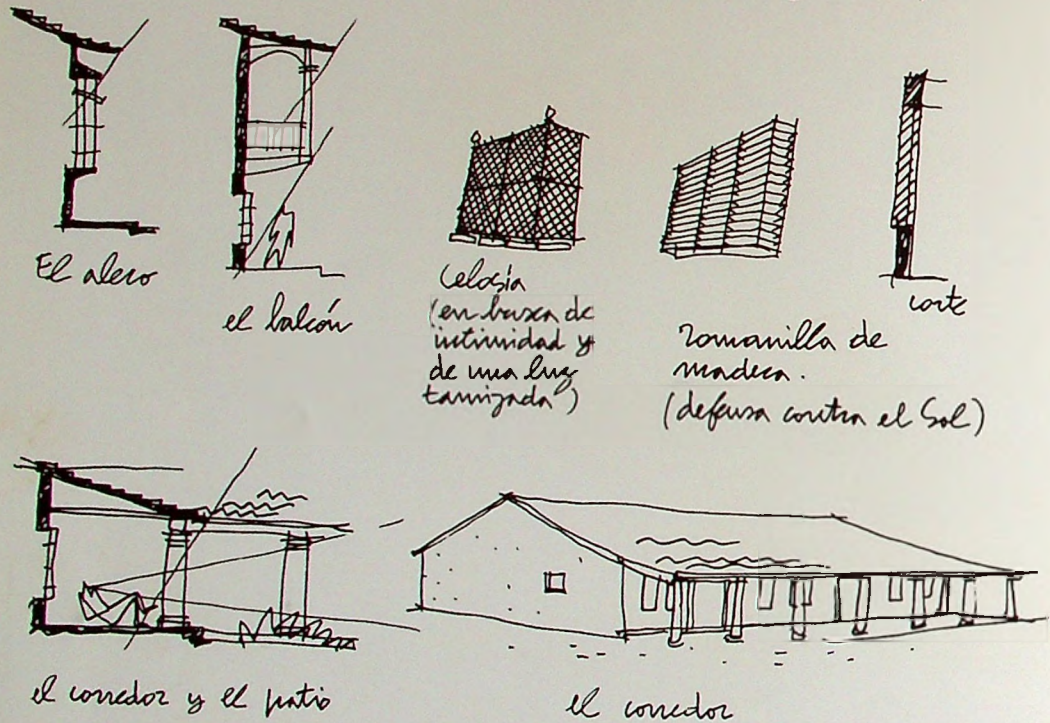 El alero
el balcón
Celosía
(en busca de
intimidad y
de una luz
tamizada)
romanilla de
madera.
(defensa contra el Sol)
corte
el corredor y el patio
el corredor